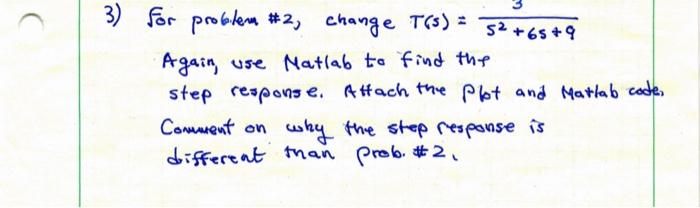 3) For problem #2, change T(s) = 3 / s² + 6s + 9
Again, use Matlab to find the
step response. Attach the plot and Matlab code,
Comment on why the step response is
different than prob. #2.